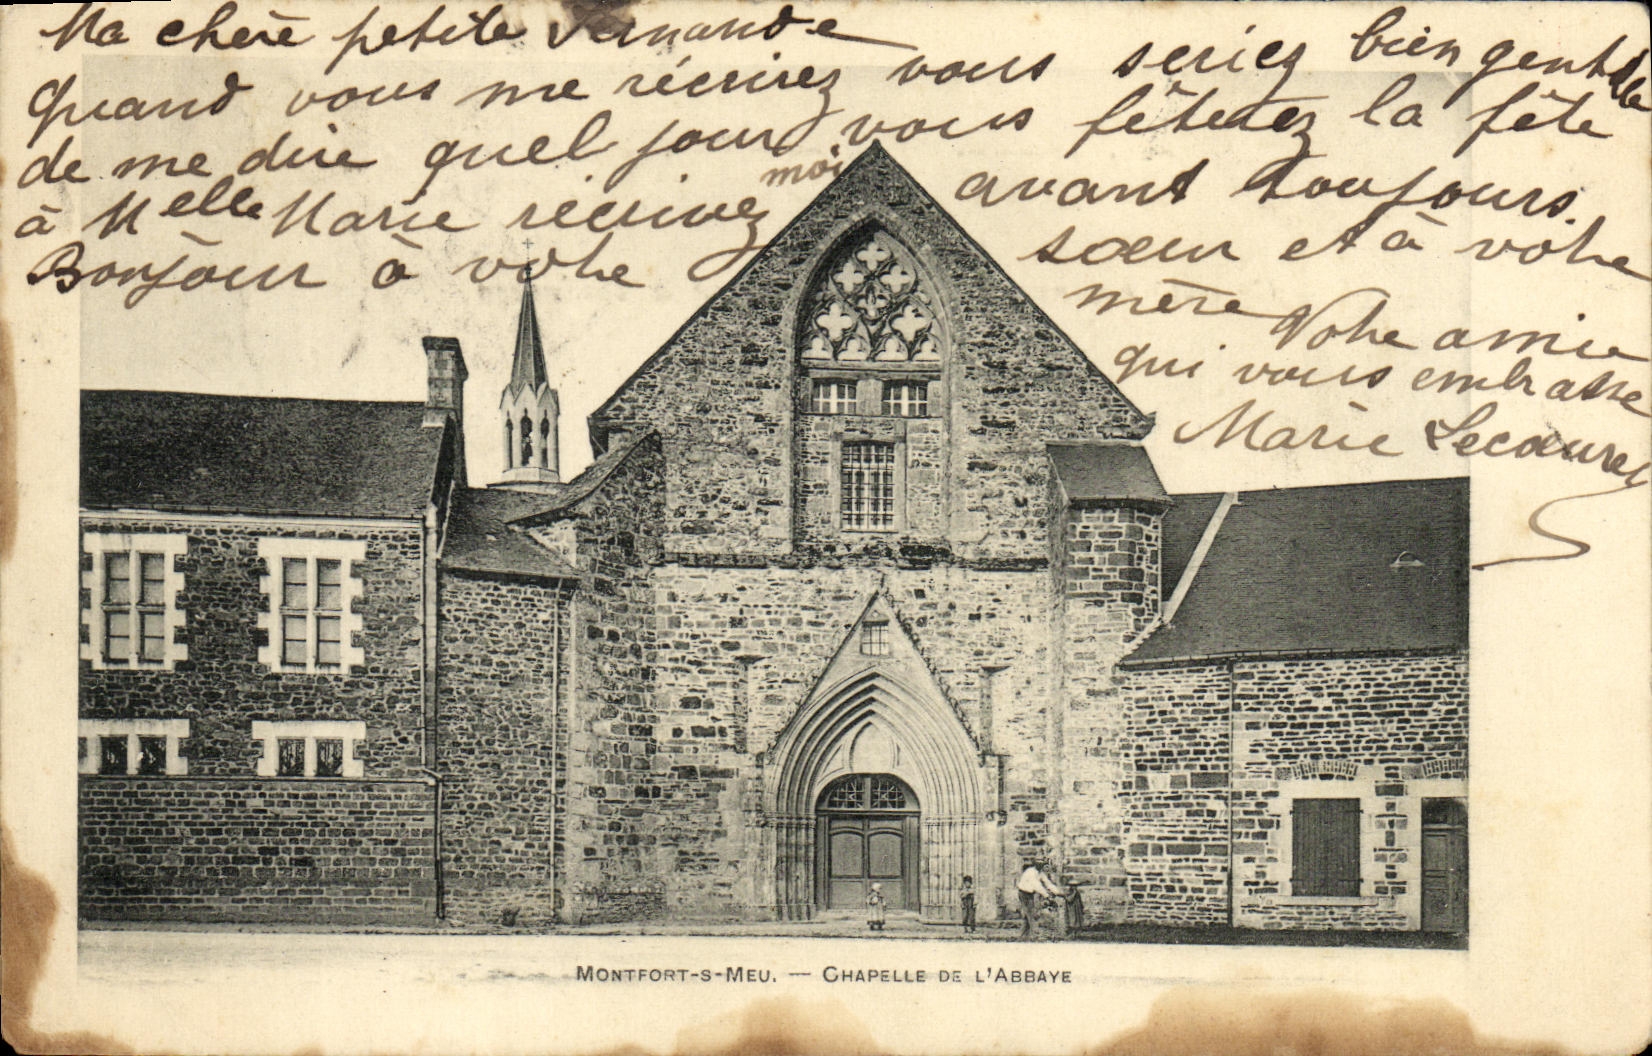 Ma chère petite Fernande
quand vous me récrirez vous seriez bien gentille
de me dire quel jour vous fêterez la fête
à Melle Marie récrivez moi avant toujours.
Bonjour à votre sœur et à votre
mère
Votre amie
qui vous embrasse
Marie Lecœurey
MONTFORT-S-MEU. — CHAPELLE DE L'ABBAYE